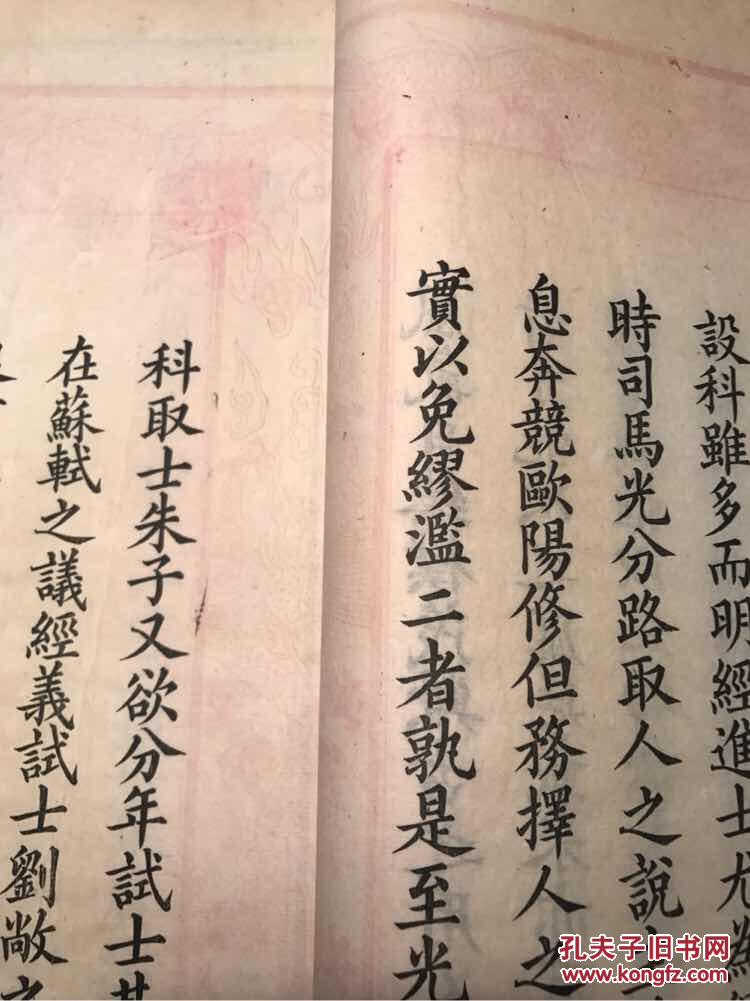 設科雖多而明經進士尤
時司馬光分路取人之說
息奔競歐陽修但務擇人之
實以免繆濫二者孰是至光
科取士朱子又欲分年試士其
在蘇軾之議經義試士劉敞之
孔夫子旧书网
www.kongfz.com